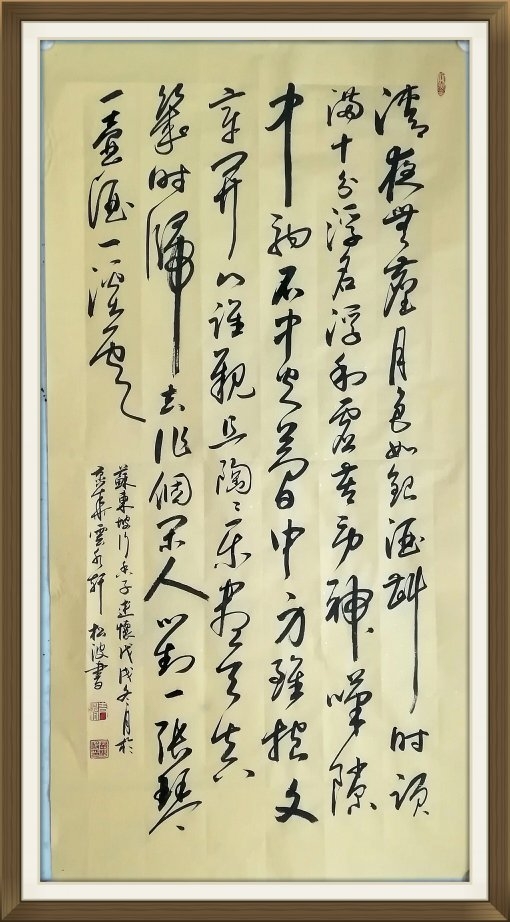 清夜無塵月色如銀酒斟时須
滿十分浮名浮利虛苦勞神嘆隙
中駒石中火夢中身雖抱文
章開口誰親且陶々樂盡天真
幾时歸去作個閑人對一張琴
一壺酒一溪雲
蘇東坡行香子述懷戊戌冬月於
華雲水軒 松波書